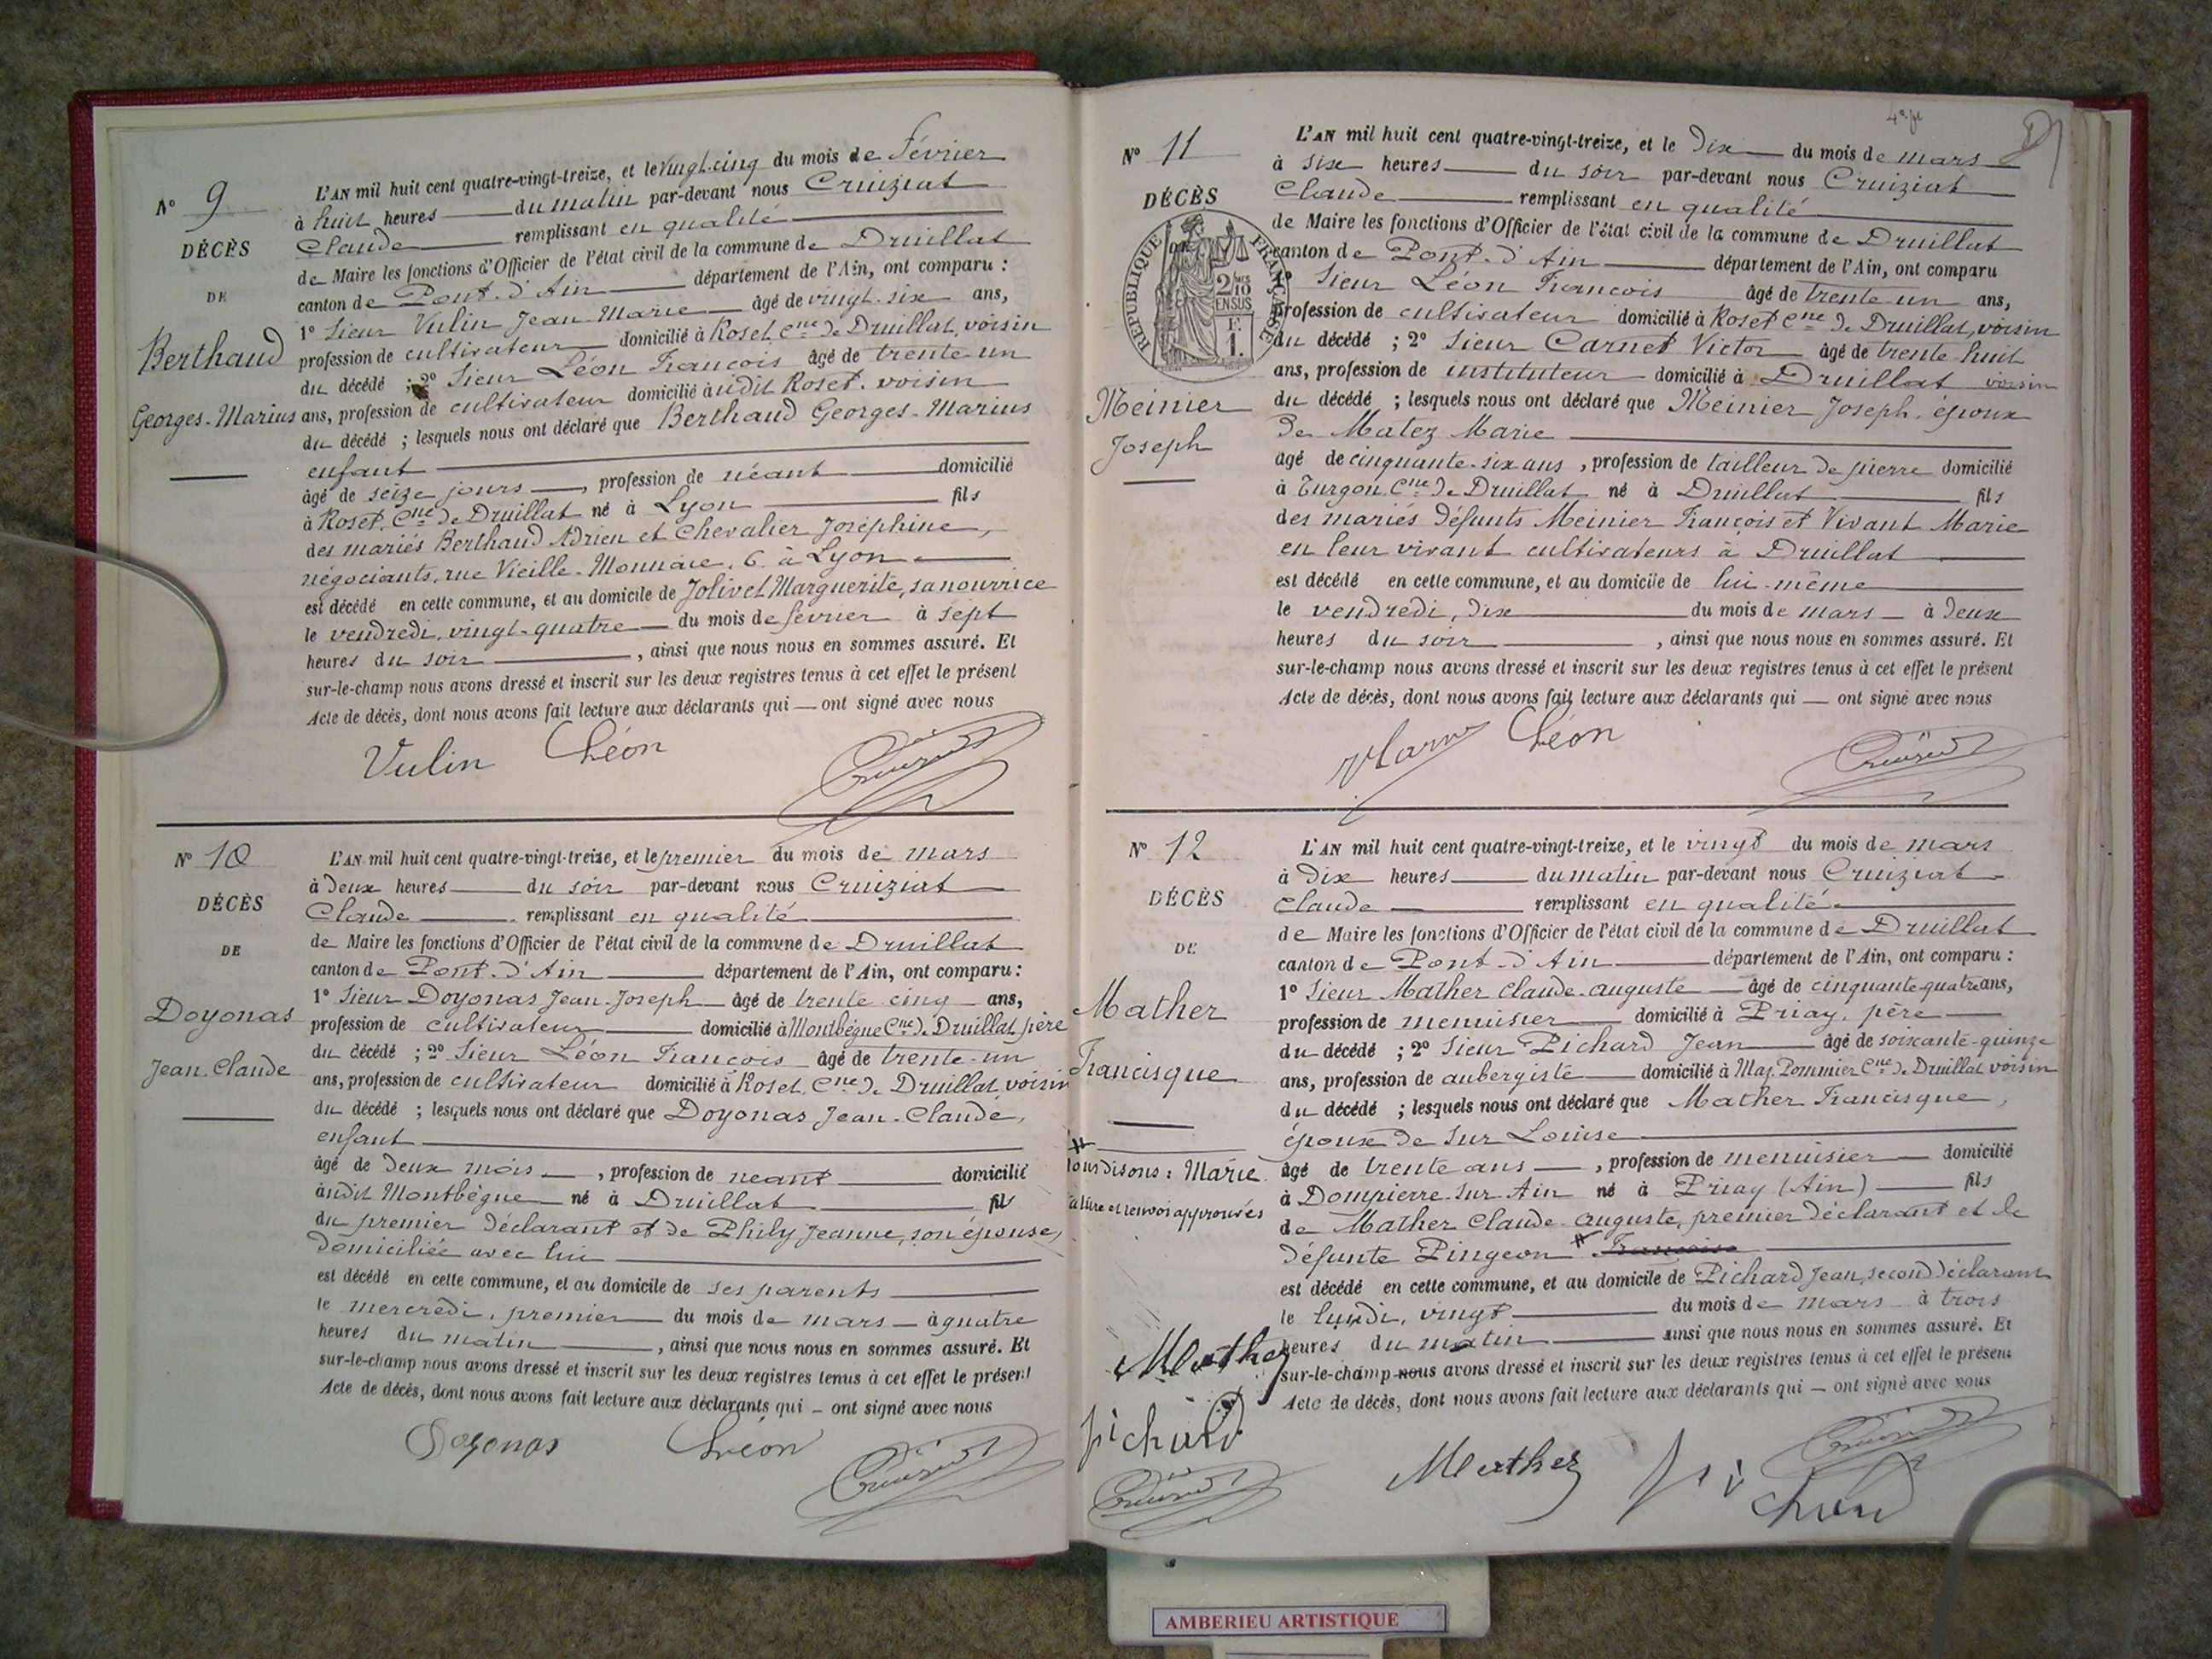 N° 9
DÉCÈS
DE
Berthaud
Georges-Marius
L'AN mil huit cent quatre-vingt-treize, et le vingt-cinq du mois de Février
à huit heures du matin par-devant nous Cruiziat
Claude remplissant en qualité
de Maire les fonctions d'Officier de l'état civil de la commune de Druillat
canton de Pont-d'Ain département de l'Ain, ont comparu :
1° Sieur Vulin Jean-Marie âgé de vingt-six ans,
profession de cultivateur domicilié à Roset, Cne de Druillat, voisin
du décédé ; 2° Sieur Léon François âgé de trente-un
ans, profession de cultivateur domicilié àudit Roset, voisin
du décédé ; lesquels nous ont déclaré que Berthaud Georges-Marius
enfant
âgé de seize jours, profession de néant domicilié
à Roset, Cne de Druillat né à Lyon fils
des mariés Berthaud Adrien et Chevalier Joséphine,
négociants, rue Vieille-Monnaie, 6, à Lyon
est décédé en cette commune, et au domicile de Jolivet Marguerite, sa nourrice
le vendredi, vingt-quatre du mois de février à sept
heures du soir, ainsi que nous nous en sommes assuré. Et
sur-le-champ nous avons dressé et inscrit sur les deux registres tenus à cet effet le présent
Acte de décès, dont nous avons fait lecture aux déclarants qui — ont signé avec nous
Vulin Léon Cruiziat
N° 10
DÉCÈS
DE
Doyonas
Jean-Claude
L'AN mil huit cent quatre-vingt-treize, et le premier du mois de mars
à deux heures du soir par-devant nous Cruiziat
Claude remplissant en qualité
de Maire les fonctions d'Officier de l'état civil de la commune de Druillat
canton de Pont-d'Ain département de l'Ain, ont comparu :
1° Sieur Doyonas Jean-Joseph âgé de trente cinq ans,
profession de cultivateur domicilié à Montbègue Cne de Druillat, père
du décédé ; 2° Sieur Léon François âgé de trente-un
ans, profession de cultivateur domicilié à Roset, Cne de Druillat, voisin
du décédé ; lesquels nous ont déclaré que Doyonas Jean-Claude,
enfant
âgé de deux mois, profession de néant domicilié
àudit Montbègue né à Druillat fils
du premier déclarant et de Phily Jeanne, son épouse,
domiciliée avec lui
est décédé en cette commune, et au domicile de ses parents
le mercredi, premier du mois de mars à quatre
heures du matin, ainsi que nous nous en sommes assuré. Et
sur-le-champ nous avons dressé et inscrit sur les deux registres tenus à cet effet le présent
Acte de décès, dont nous avons fait lecture aux déclarants qui — ont signé avec nous
Doyonas Léon Cruiziat
N° 11
DÉCÈS
RÉPUBLIQUE FRANÇAISE
2/10
EN SUS
F.
1.
Meinier
Joseph
L'AN mil huit cent quatre-vingt-treize, et le dix du mois de mars
à six heures du soir par-devant nous Cruiziat
Claude remplissant en qualité
de Maire les fonctions d'Officier de l'état civil de la commune de Druillat
canton de Pont-d'Ain département de l'Ain, ont comparu
Sieur Léon François âgé de trente-un ans,
profession de cultivateur domicilié à Roset Cne de Druillat, voisin
du décédé ; 2° Sieur Carnet Victor âgé de trente-huit
ans, profession de instituteur domicilié à Druillat voisin
du décédé ; lesquels nous ont déclaré que Meinier Joseph, époux
de Matez Marie
agé de cinquante-six ans, profession de tailleur de pierre domicilié
à Turgon, Cne de Druillat né à Druillat fils
des mariés défunts Meinier François et Vivant Marie
en leur vivant cultivateurs à Druillat
est décédé en cette commune, et au domicile de lui-même
le vendredi, dix du mois de mars à deux
heures du soir, ainsi que nous nous en sommes assuré. Et
sur-le-champ nous avons dressé et inscrit sur les deux registres tenus à cet effet le présent
Acte de décès, dont nous avons fait lecture aux déclarants qui — ont signé avec nous
Léon Cruiziat
N° 12
DÉCÈS
DE
Mather
Francisque
Nous disons : Marie
rature et renvoi approuvés
Mather
Pichard
Cruiziat
L'AN mil huit cent quatre-vingt-treize, et le vingt du mois de mars
à dix heures du matin par-devant nous Cruiziat
Claude remplissant en qualité
de Maire les fonctions d'Officier de l'état civil de la commune de Druillat
canton de Pont-d'Ain département de l'Ain, ont comparu :
1° Sieur Mather Claude-Auguste âgé de cinquante-quatre ans,
profession de menuisier domicilié à Priay, père
du décédé ; 2° Sieur Pichard Jean âgé de soixante-quinze
ans, profession de aubergiste domicilié à Maz-Pommier Cne de Druillat voisin
du décédé ; lesquels nous ont déclaré que Mather Francisque,
époux de Sur Louise
âgé de trente ans, profession de menuisier domicilié
à Dompierre-sur-Ain né à Priay (Ain) fils
de Mather Claude-Auguste, premier déclarant et de
défunte Pingeon # Françoise
est décédé en cette commune, et au domicile de Pichard Jean, second déclarant
le lundi, vingt du mois de mars à trois
heures du matin ainsi que nous nous en sommes assuré. Et
sur-le-champ nous avons dressé et inscrit sur les deux registres tenus à cet effet le présent
Acte de décès, dont nous avons fait lecture aux déclarants qui — ont signé avec nous
Mather Pichard Cruiziat
AMBERIEU ARTISTIQUE